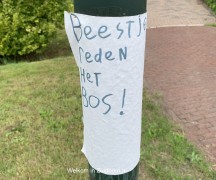 Beestje
reden
Het
Bos!
Welkom in